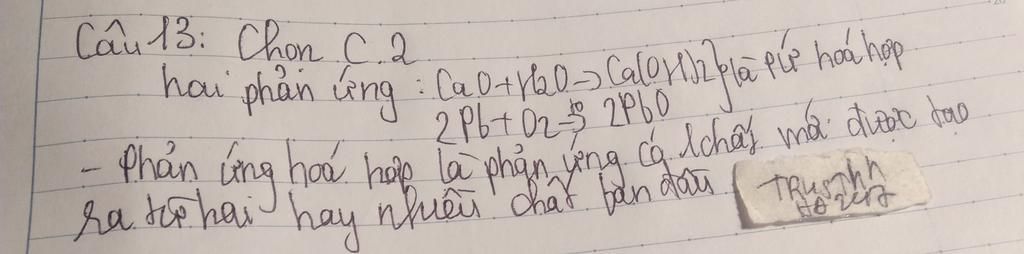 Câu 13: Chọn C.2
hai phản ứng : CaO + H2O → Ca(OH)2 } là pứ hoá hợp
2Pb + O2 →to 2PbO
- Phản ứng hoá hợp là phản ứng có 1 chất mới được tạo
ra từ hai hay nhiều chất ban đầu